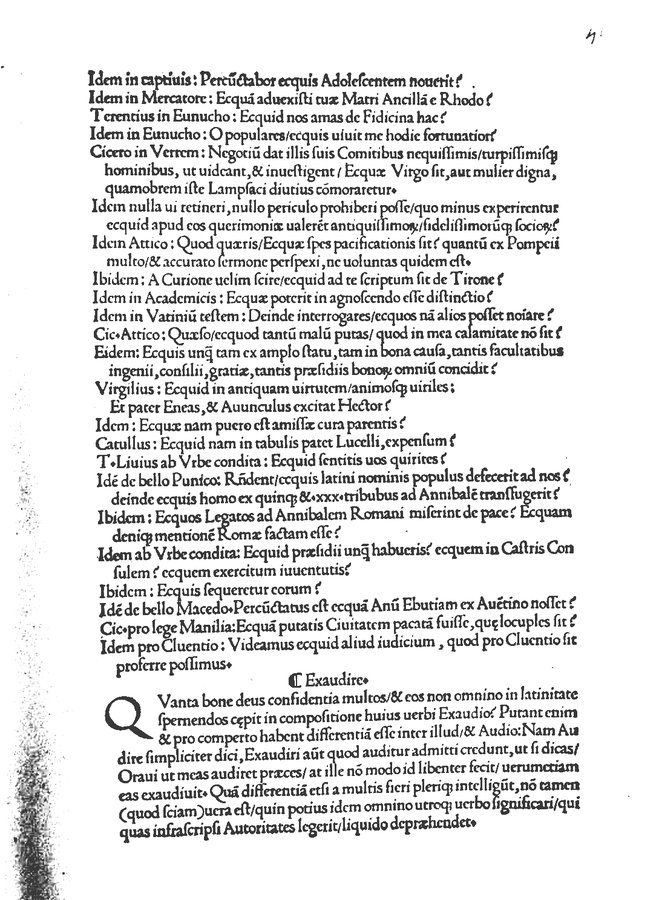 4
Idem in captiuis: Percūctabor ecquis Adolescentem nouerit?
Idem in Mercatore: Ecquā aduexiſti tuæ Matri Ancillā e Rhodo?
Terentius in Eunucho: Ecquid nos amas de Fidicina hac?
Idem in Eunucho: O populares/ecquis uiuit me hodie fortunatior?
Cicero in Verrem: Negotiū dat illis ſuis Comitibus nequiſſimis/turpiſſimiſꝗ
hominibus, ut uideant,& inueſtigent/ Ecquæ Virgo ſit,aut mulier digna,
quamobrem iſte Lampſaci diutius cōmoraretur.
Idem nulla ui retineri,nullo periculo prohiberi poſſe/quo minus experirentur
ecquid apud eos querimoniæ ualerēt antiquiſſimoꝝ/fideliſſimorūꝗ ſocioꝝ?
Idem Attico: Quod quæris/Ecquæ ſpes pacificationis ſit? quantū ex Pompeii
multo/& accurato ſermone perſpexi,ne uoluntas quidem eſt.
Ibidem: A Curione uelim ſcire/ecquid ad te ſcriptum ſit de Tirone?
Idem in Academicis: Ecquæ poterit in agnoſcendo eſſe diſtinctio?
Idem in Vatiniū teſtem: Deinde interrogares/ecquos nā alios poſſet noſare?
Cic.Attico: Quæſo/ecquod tantū malū putas/ quod in mea calamitate nō ſit?
Eidem: Ecquis unꝗ̄ tam ex amplo ſtatu,tam in bona cauſa,tantis facultatibus
ingenii,conſilii,gratiæ,tantis præſidiis bonoꝝ omniū concidit?
Virgilius: Ecquid in antiquam uirtutem/animoſꝗ uiriles;
Et pater Eneas,& Auunculus excitat Hector?
Idem: Ecquæ nam puero eſt amiſſæ cura parentis?
Catullus: Ecquid nam in tabulis patet Lucelli,expenſum?
T.Liuius ab Vrbe condita: Ecquid ſentitis uos quirites?
Idē de bello Punico: Rn̄dent/ecquis latini nominis populus defecerit ad nos?
deinde ecquis homo ex quinꝗ &.xxx.tribubus ad Annibalē tranſfugerit?
Ibidem: Ecquos Legatos ad Annibalem Romani miſerint de pace? Ecquam
deniꝗ mentionē Romæ factam eſſe?
Idem ab Vrbe condita: Ecquid præſidii unꝗ̄ habueris? ecquem in Caſtris Con
ſulem? ecquem exercitum iuuentutis?
Ibidem: Ecquis ſequeretur eorum?
Idē de bello Macedo.Percūctatus eſt ecquā Anū Ebutiam ex Auētino noſſet?
Cic.pro lege Manilia:Ecquā putatis Ciuitatem pacatā fuiſſe,quę locuples ſit?
Idem pro Cluentio: Videamus ecquid aliud iudicium, quod pro Cluentio ſit
proferre poſſimus.
⸿ Exaudire.
QVanta bone deus confidentia multos/& eos non omnino in latinitate
ſpernendos cępit in compoſitione huius uerbi Exaudio? Putant enim
& pro comperto habent differentiā eſſe inter illud/& Audio:Nam Au
dire ſimpliciter dici, Exaudiri aūt quod auditur admitti credunt,ut ſi dicas/
Oraui ut meas audiret præces/at ille nō modo id libenter fecit/uerumetiam
eas exaudiuit. Quā differentiā etſi a multis fieri pleriꝗ intelligūt,nō tamen
(quod ſciam)uera eſt/quin potius idem omnino utroꝗ uerbo ſignificari/qui
quas infraſcripſi Autoritates legerit/liquido depræhendet.